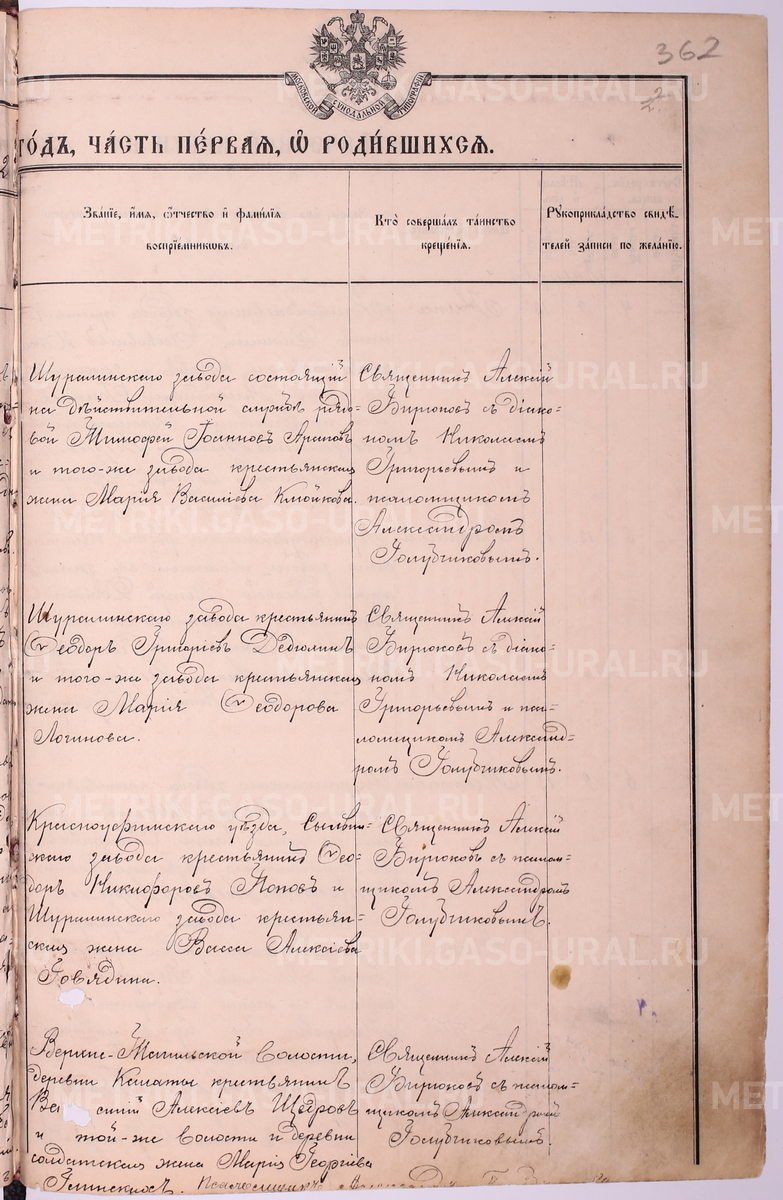 362
2
2.
МОСКОВСКОЙ СѴНОДАЛЬНОЙ ТИПОГРАФІИ
ГОДЪ, ЧАСТЬ ПЕРВАЯ, Ѡ РОДИВШИХСЯ.
Званіе, имя, отчество и фамилія
воспріемниковъ.
Кто совершалъ таинство
крещенія.
Рукоприкладство свидѣ-
телей записи по желанію.
Шуралинскаго завода состоящій
на дѣйствительной службѣ рядо-
вой Тимофей Іоанновъ Арапов
и того-же завода крестьянская
жена Марія Василіева Клюйкова.
Священникъ Алексій
Бирюковъ съ діако-
номъ Николаемъ
Григорьевымъ и
псаломщикомъ
Александромъ
Голубчиковымъ.
Шуралинскаго завода крестьянинъ
Ѳеодоръ Григоріевъ Дедюлинъ
и того-же завода крестьянская
жена Марія Ѳеодорова
Логинова.
Священникъ Алексій
Бирюковъ съ діако-
номъ Николаемъ
Григорьевымъ и пса-
ломщикомъ Александ-
ромъ Голубчиковымъ.
Красноуфимскаго уѣзда, Сылвин-
скаго завода крестьянинъ Ѳео-
доръ Никифоровъ Поповъ и
Шуралинскаго завода крестьян-
ская жена Васса Алексіева
Говядина.
Священникъ Алексій
Бирюковъ съ псалом-
щикомъ Александромъ
Голубчиковымъ.
Верхне-Тагильской волости,
деревни Каматы крестьянинъ
Ва силій Алексіевъ Щедровъ
и той-же волости и деревни
солдатская жена Марія Георгіева
Псаломщикъ
Священникъ Алексій
Бирюковъ съ псалом-
щикомъ Александромъ
Голубчиковымъ.
METRIKI.GASO-URAL.RU